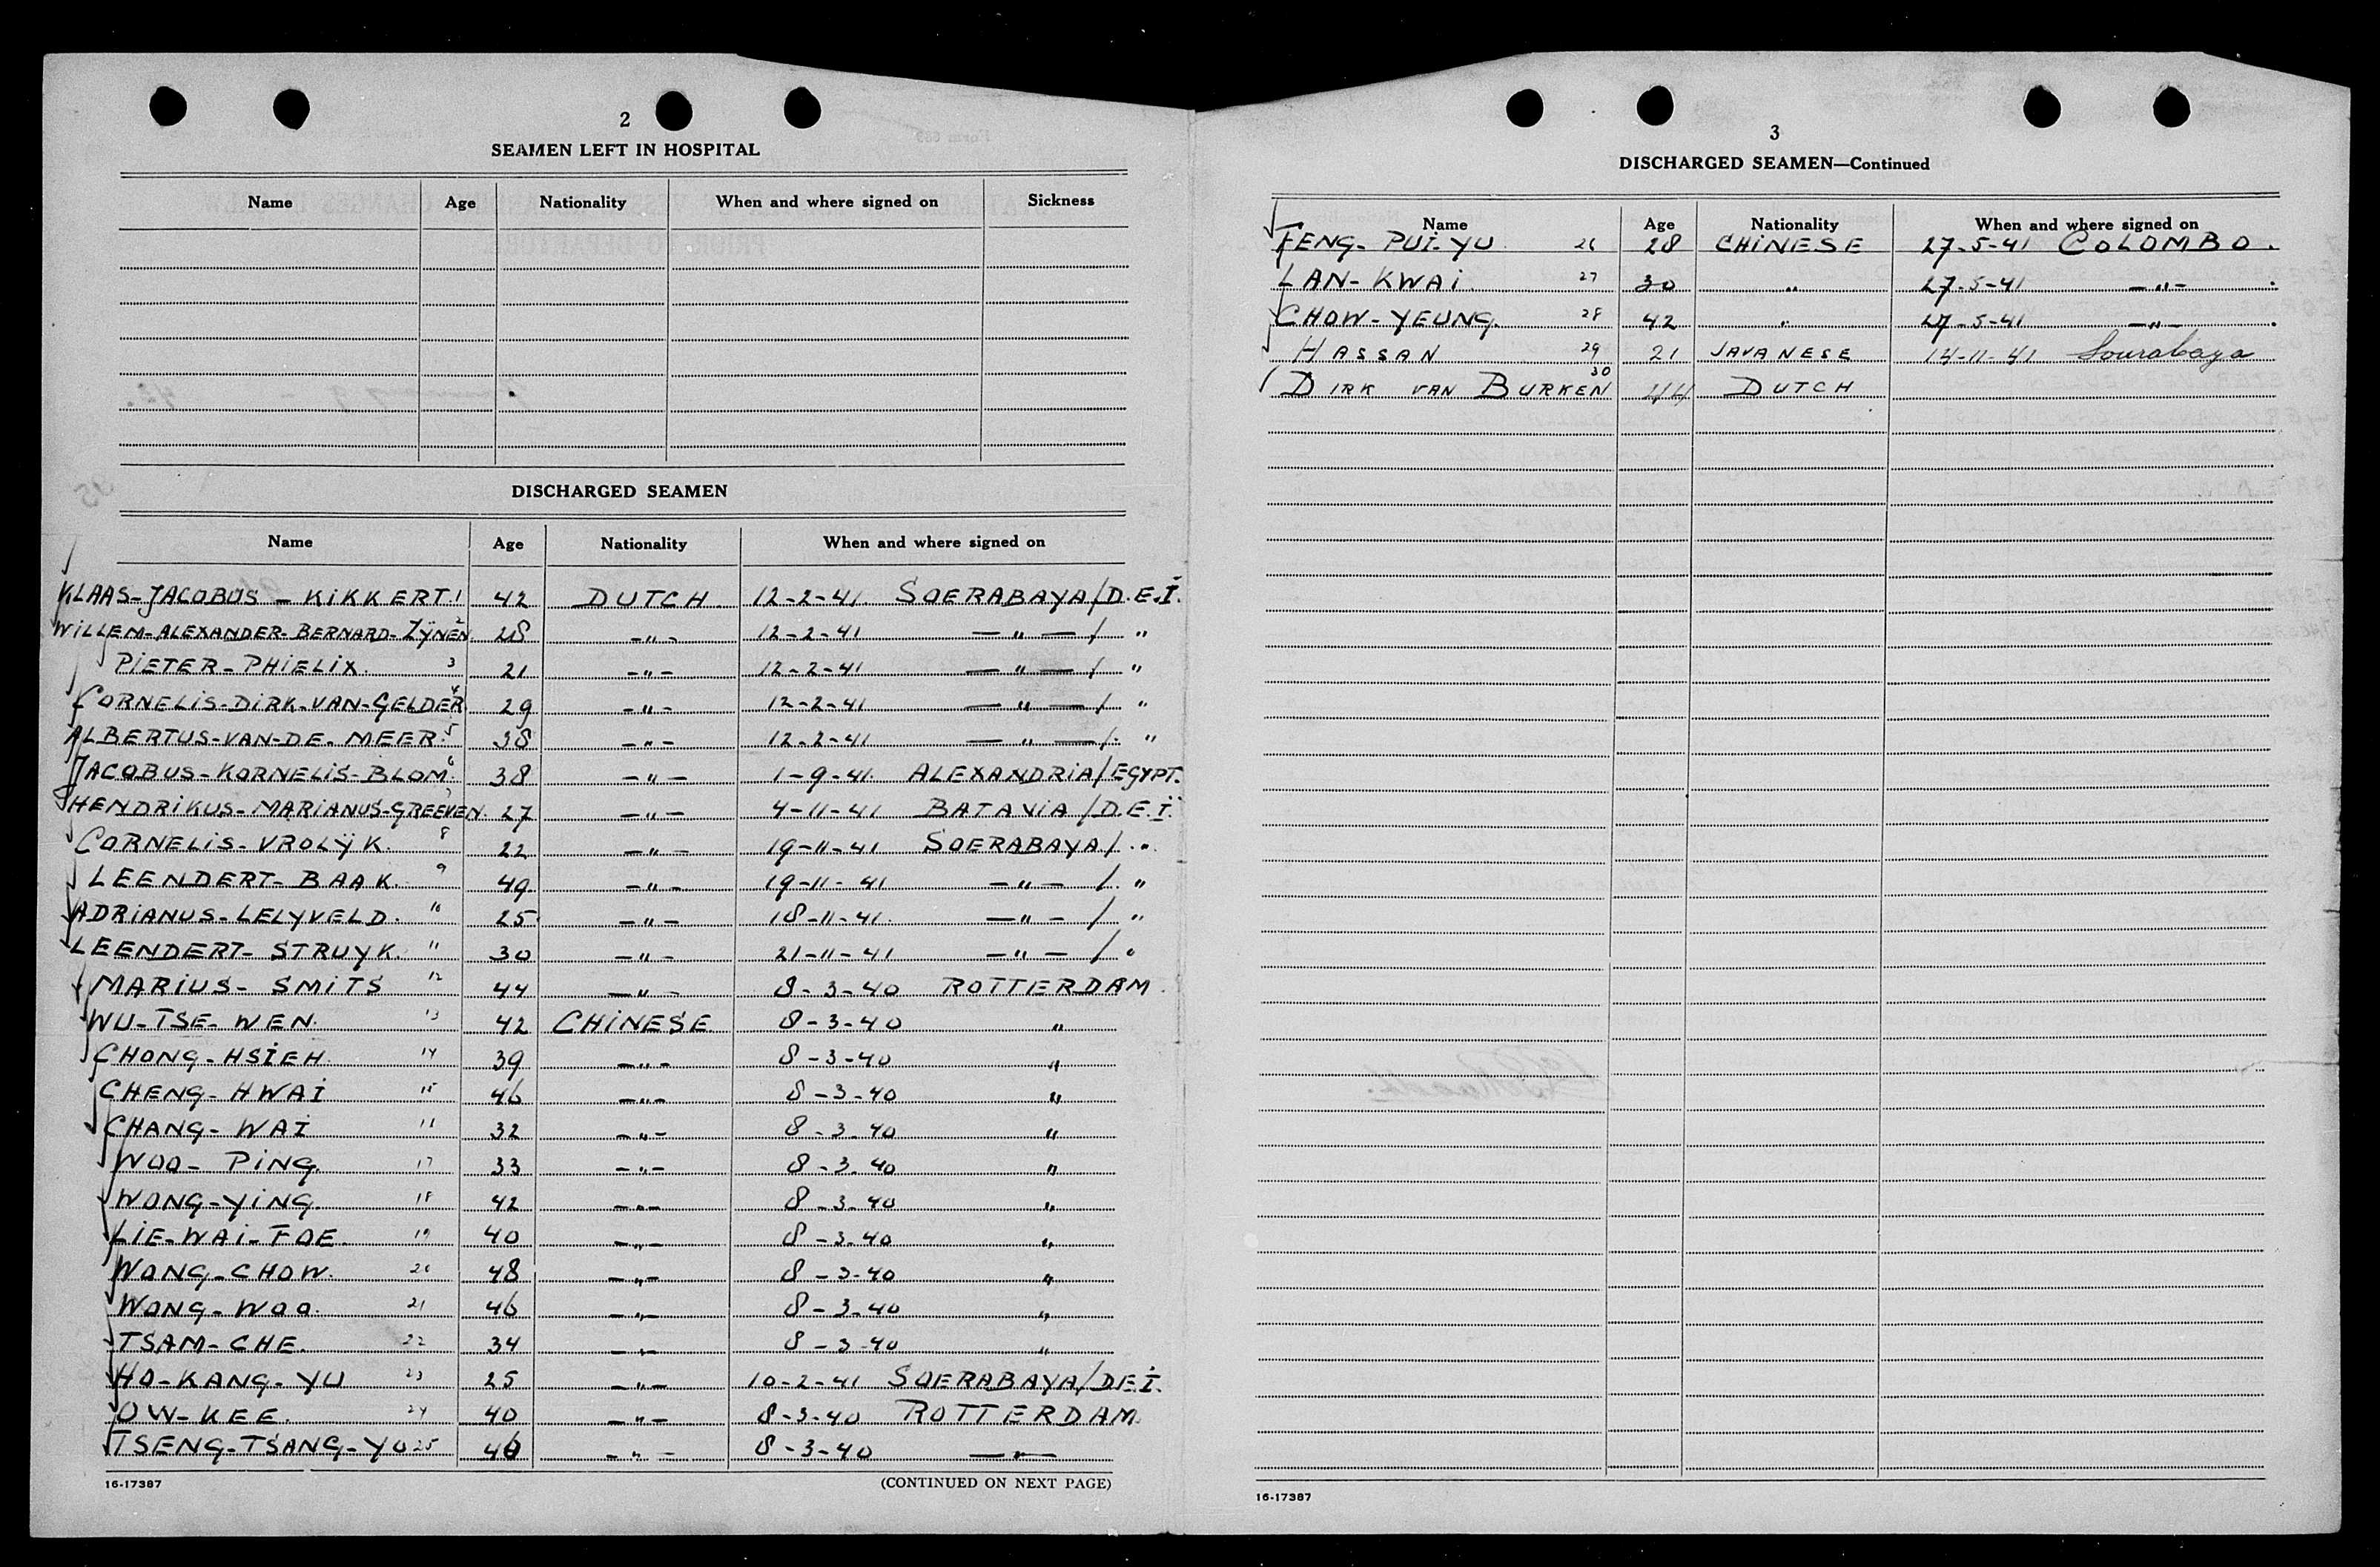 2
SEAMEN LEFT IN HOSPITAL
Name Age Nationality When and where signed on Sickness
DISCHARGED SEAMEN
Name Age Nationality When and where signed on
KLAAS-JACOBUS-KIKKERT. 1 42 DUTCH. 12-2-41. SOERABAYA/D.E.I.
WILLEM-ALEXANDER-BERNARD-ZŸNEN 2 28 -"- 12-2-41 -"-/ "
PIETER-PHIELIX. 3 21 -"- 12-2-41 -"-/ "
CORNELIS-DIRK-VAN-GELDER 4 29 -"- 12-2-41 -"-/ "
ALBERTUS-VAN-DE-MEER. 5 38 -"- 12-2-41 -"-/. "
JACOBUS-KORNELIS-BLOM. 6 38 -"- 1-9-41. ALEXANDRIA/EGYPT.
HENDRIKUS-MARIANUS-GREEVEN. 7 27 -"- 4-11-41 BATAVIA/D.E.I.
CORNELIS-VROLŸK. 8 22 -"- 19-11-41 SOERABAYA/ "
LEENDERT-BAAK. 9 49 -"- 19-11-41 -"-/. "
ADRIANUS-LELYVELD. 10 25 -"- 18-11-41. -"-/ "
LEENDERT-STRUYK. 11 30 -"- 21-11-41 -"-/ "
MARIUS-SMITS 12 44 -"- 8-3-40 ROTTERDAM.
WU-TSE-WEN. 13 42 CHINESE 8-3-40 "
CHONG-HSIEH. 14 39 -"- 8-3-40 "
CHENG-HWAI 15 46 -"- 8-3-40 "
CHANG-WAI 16 32 -"- 8-3-40 "
WOO-PING. 17 33 -"- 8-3-40 "
WONG-YING. 18 42 -"- 8-3-40 "
LIE-WAI-FOE. 19 40 -"- 8-3-40 "
WONG-CHOW. 20 48 -"- 8-3-40 "
WONG-WOO. 21 46 -"- 8-3-40 "
TSAM-CHE. 22 34 -"- 8-3-40 "
HO-KANG-YU 23 25 -"- 10-2-41 SOERABAYA/D.E.I.
OW-KEE. 24 40 -"- 8-3-40 ROTTERDAM.
TSENG-TSANG-YU 25 -"- 8-3-40 -"-
16-17387 (CONTINUED ON NEXT PAGE)
3
DISCHARGED SEAMEN—Continued
Name Age Nationality When and where signed on
FENG-PUI-YU 26 28 CHINESE 27-5-41 COLOMBO.
LAN-KWAI. 27 30 " 27-5-41 -"- .
CHOW-YEUNG. 28 42 " 27-5-41 -"- .
HASSAN 29 21 JAVANESE 14-11-41 Sourabaya
DIRK VAN BURKEN 30 44 DUTCH
16-17387